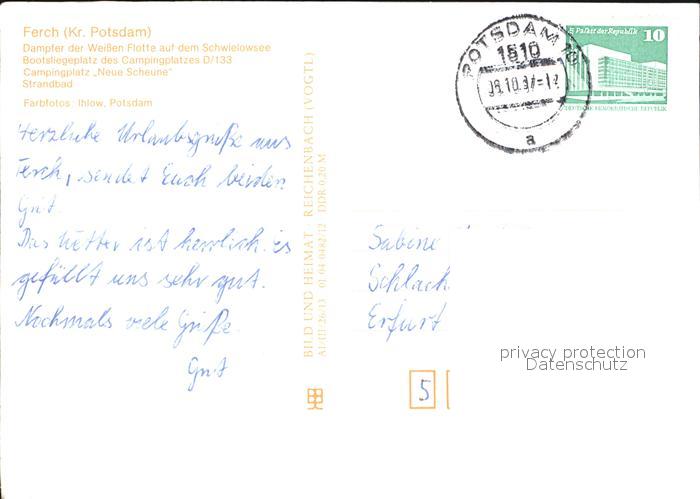 Ferch (Kr. Potsdam)
Dampfer der Weißen Flotte auf dem Schwielowsee
Bootsliegeplatz des Campingplatzes D/133
Campingplatz „Neue Scheune"
Strandbad
Farbfotos: Ihlow, Potsdam
Herzliche Urlaubsgrüße aus
Ferch, sendet Euch beiden
Grit.
Das Wetter ist herrlich. es
gefällt uns sehr gut.
Nochmals viele Grüße
Grit
BILD UND HEIMAT REICHENBACH (VOGTL)
A1/III/26/13 01 04 0482/12 DDR 0,20 M
POTSDAM
1510
a
Palast der Republik 10
DEUTSCHE DEMOKRATISCHE REPUBLIK
Sabine
Schlach
Erfurt
5
privacy protection
Datenschutz